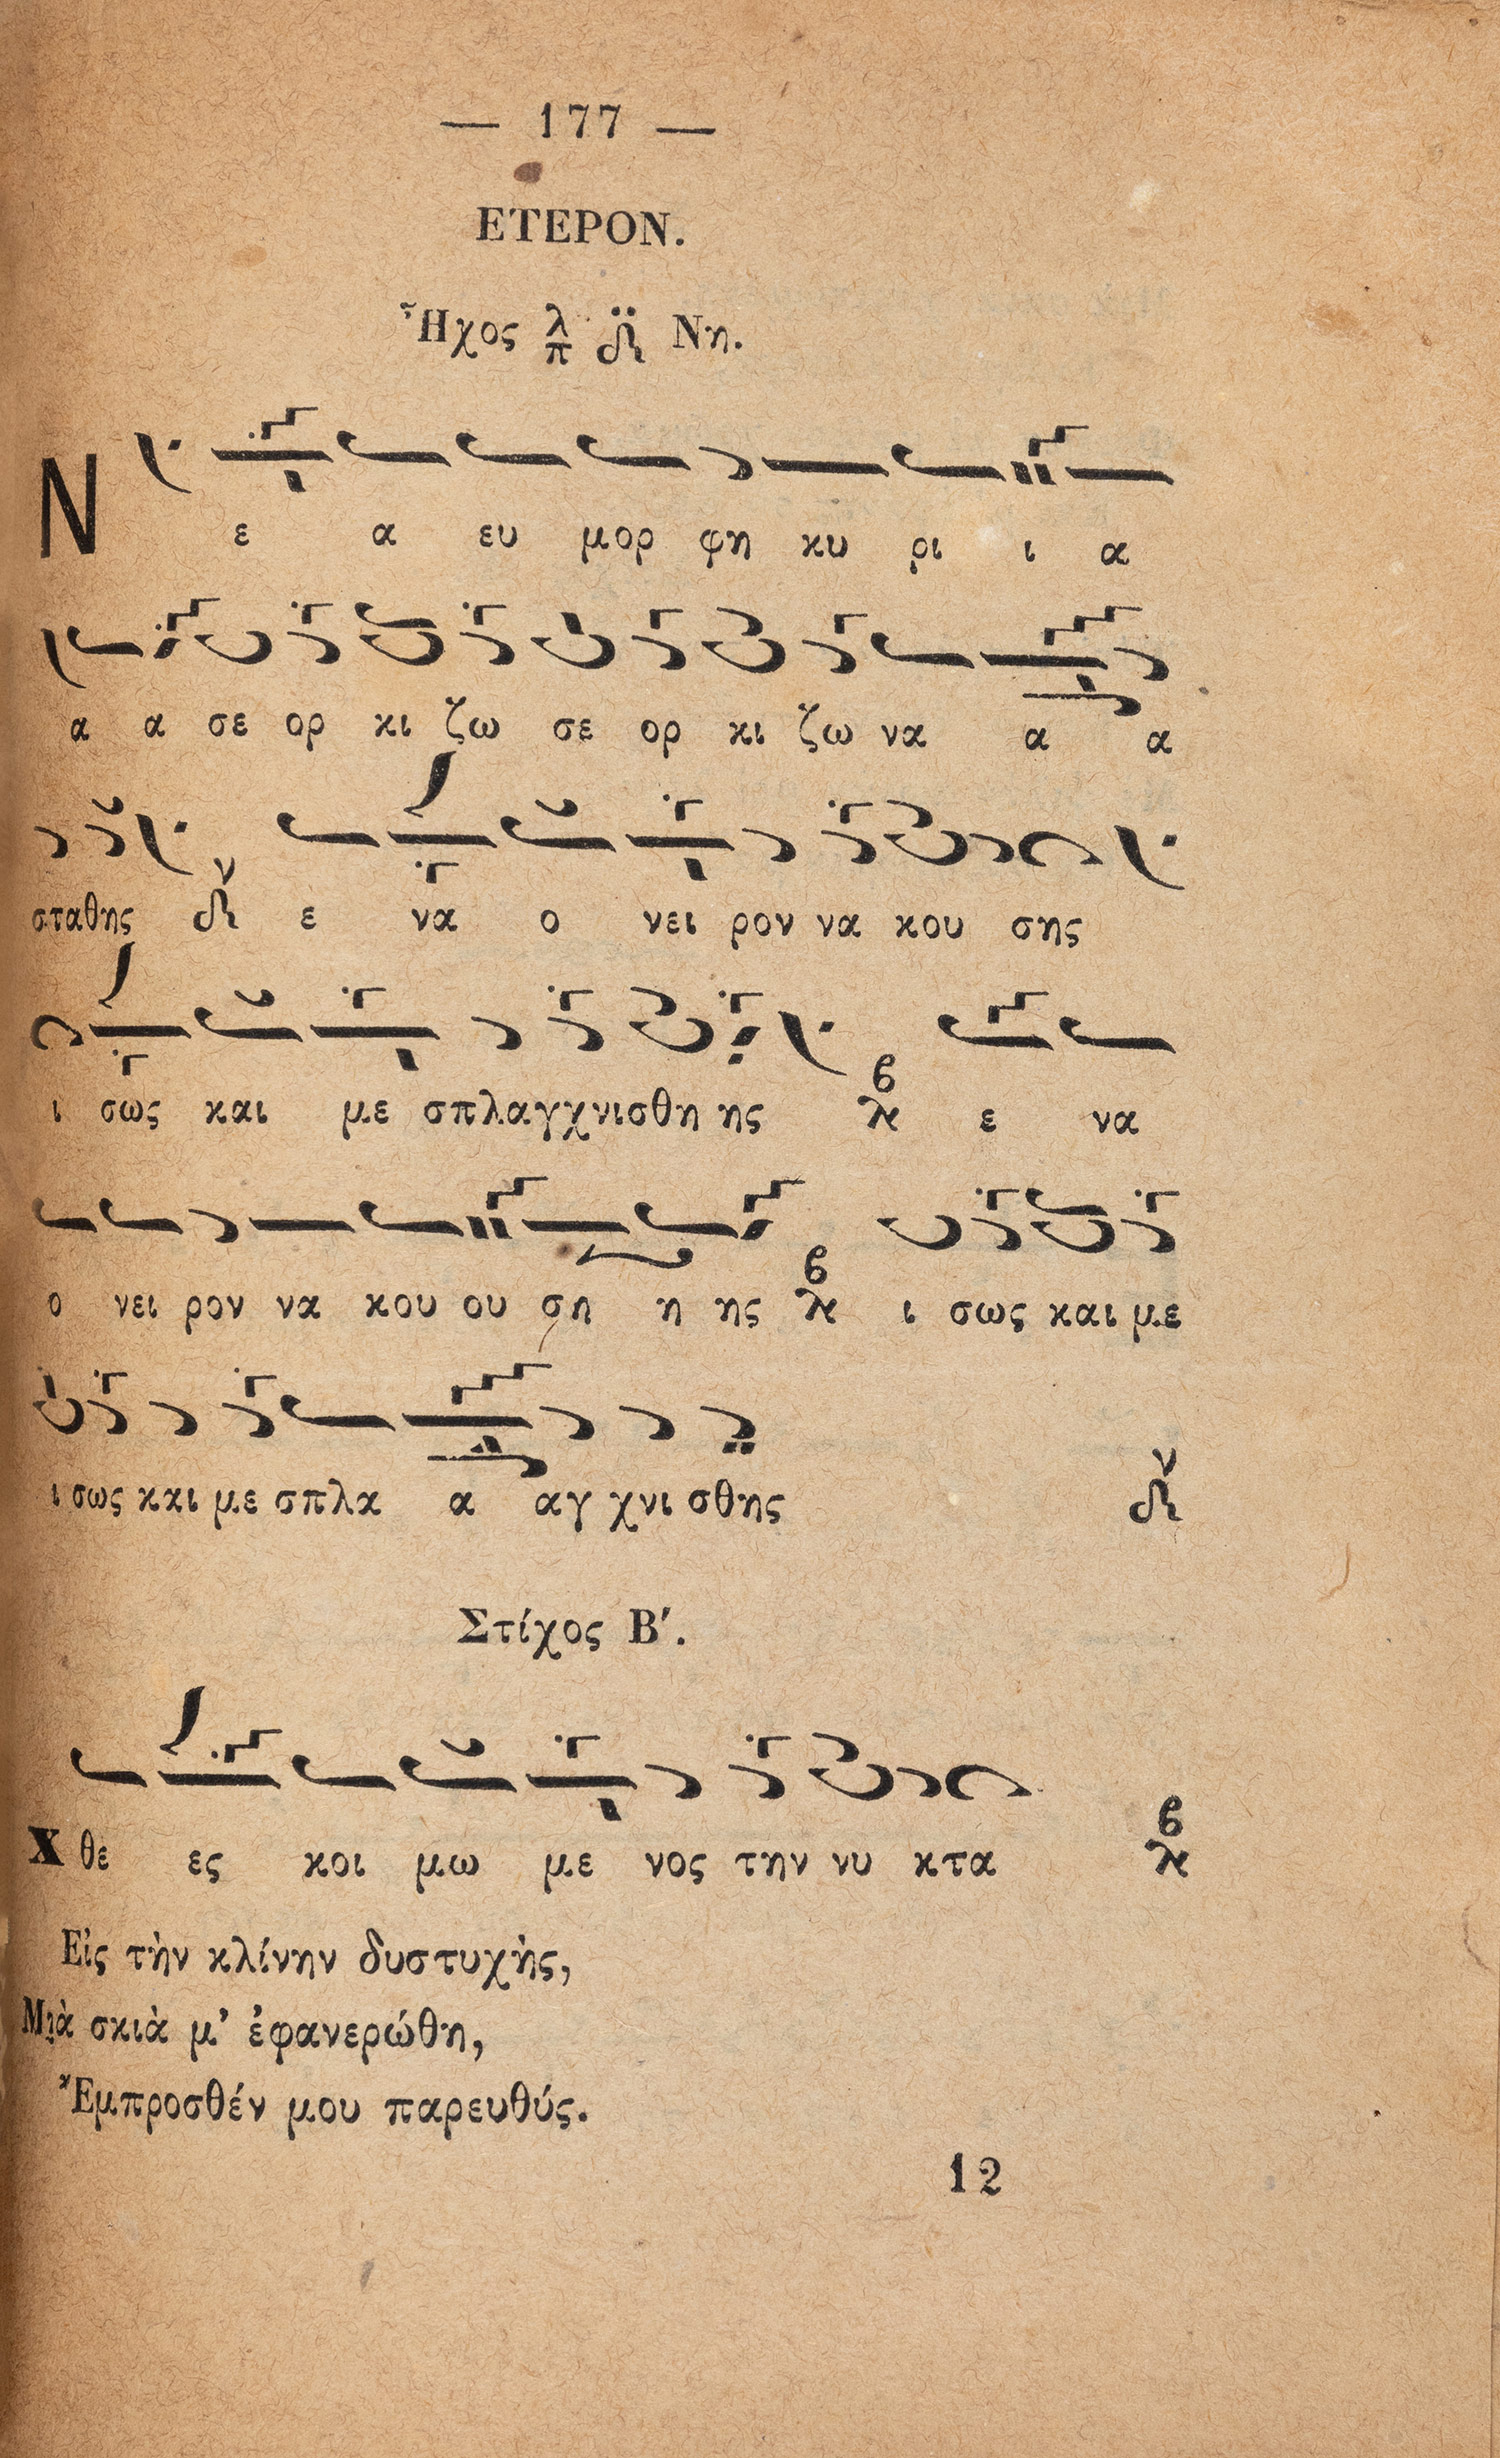 — 177 —
ΕΤΕΡΟΝ.
Ἦχος λ π Νη.
Ν ε α ευ μορ φη κυ ρι ι α
α α σε ορ κι ζω σε ορ κι ζω να α α
σταθης ν ε να ο νει ρον να κου σης
ι σως και με σπλαγχνισθη ης ε να
ο νει ρον να κου ου ση η ης ι σως και με
ι σως και με σπλα α αγ χνι σθης ν
Στίχος Β΄.
Χ θε ες κοι μω με νος την νυ κτα
Εἰς τὴν κλίνην δυστυχὴς,
Μιὰ σκιὰ μ’ ἐφανερώθη,
Ἔμπροσθέν μου παρευθύς.
12